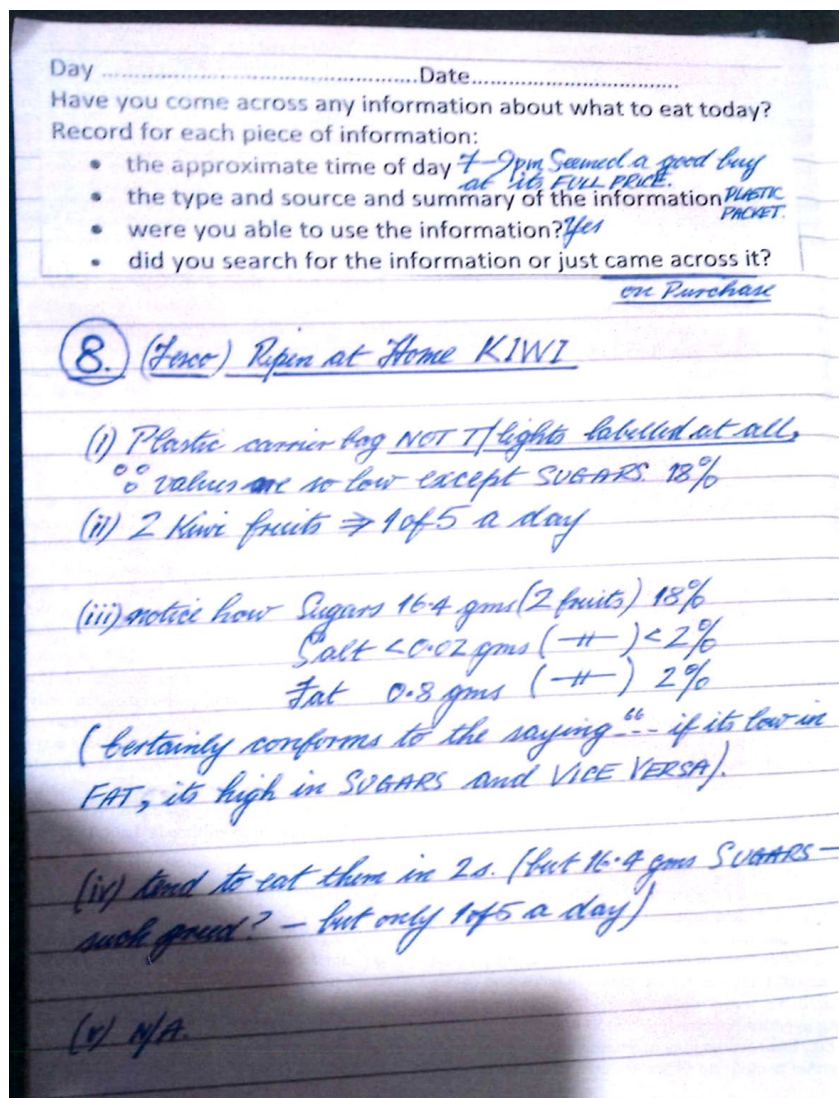 Day ............................................Date.............................
Have you come across any information about what to eat today?
Record for each piece of information:
• the approximate time of day 7-9pm Seemed a good buy
at its FULL PRICE.
• the type and source and summary of the information PLASTIC
PACKET.
• were you able to use the information? Yes
• did you search for the information or just came across it?
on Purchase
8. (Tesco) Ripen at Home KIWI
(i) Plastic carrier bag NOT T/lights labelled at all,
∵ values are so low except SUGARS. 18%
(ii) 2 Kiwi fruits ⇒ 1 of 5 a day
(iii) notice how Sugars 16.4 gms (2 fruits) 18%
Salt <0.02 gms ( —〃— ) < 2%
Fat 0.8 gms ( —〃— ) 2%
(Certainly conforms to the saying "... if its low in
FAT, its high in SUGARS and VICE VERSA).
(iv) tend to eat them in 2s. (but 16.4 gms SUGARS —
such greed? — but only 1 of 5 a day)
(v) N/A.